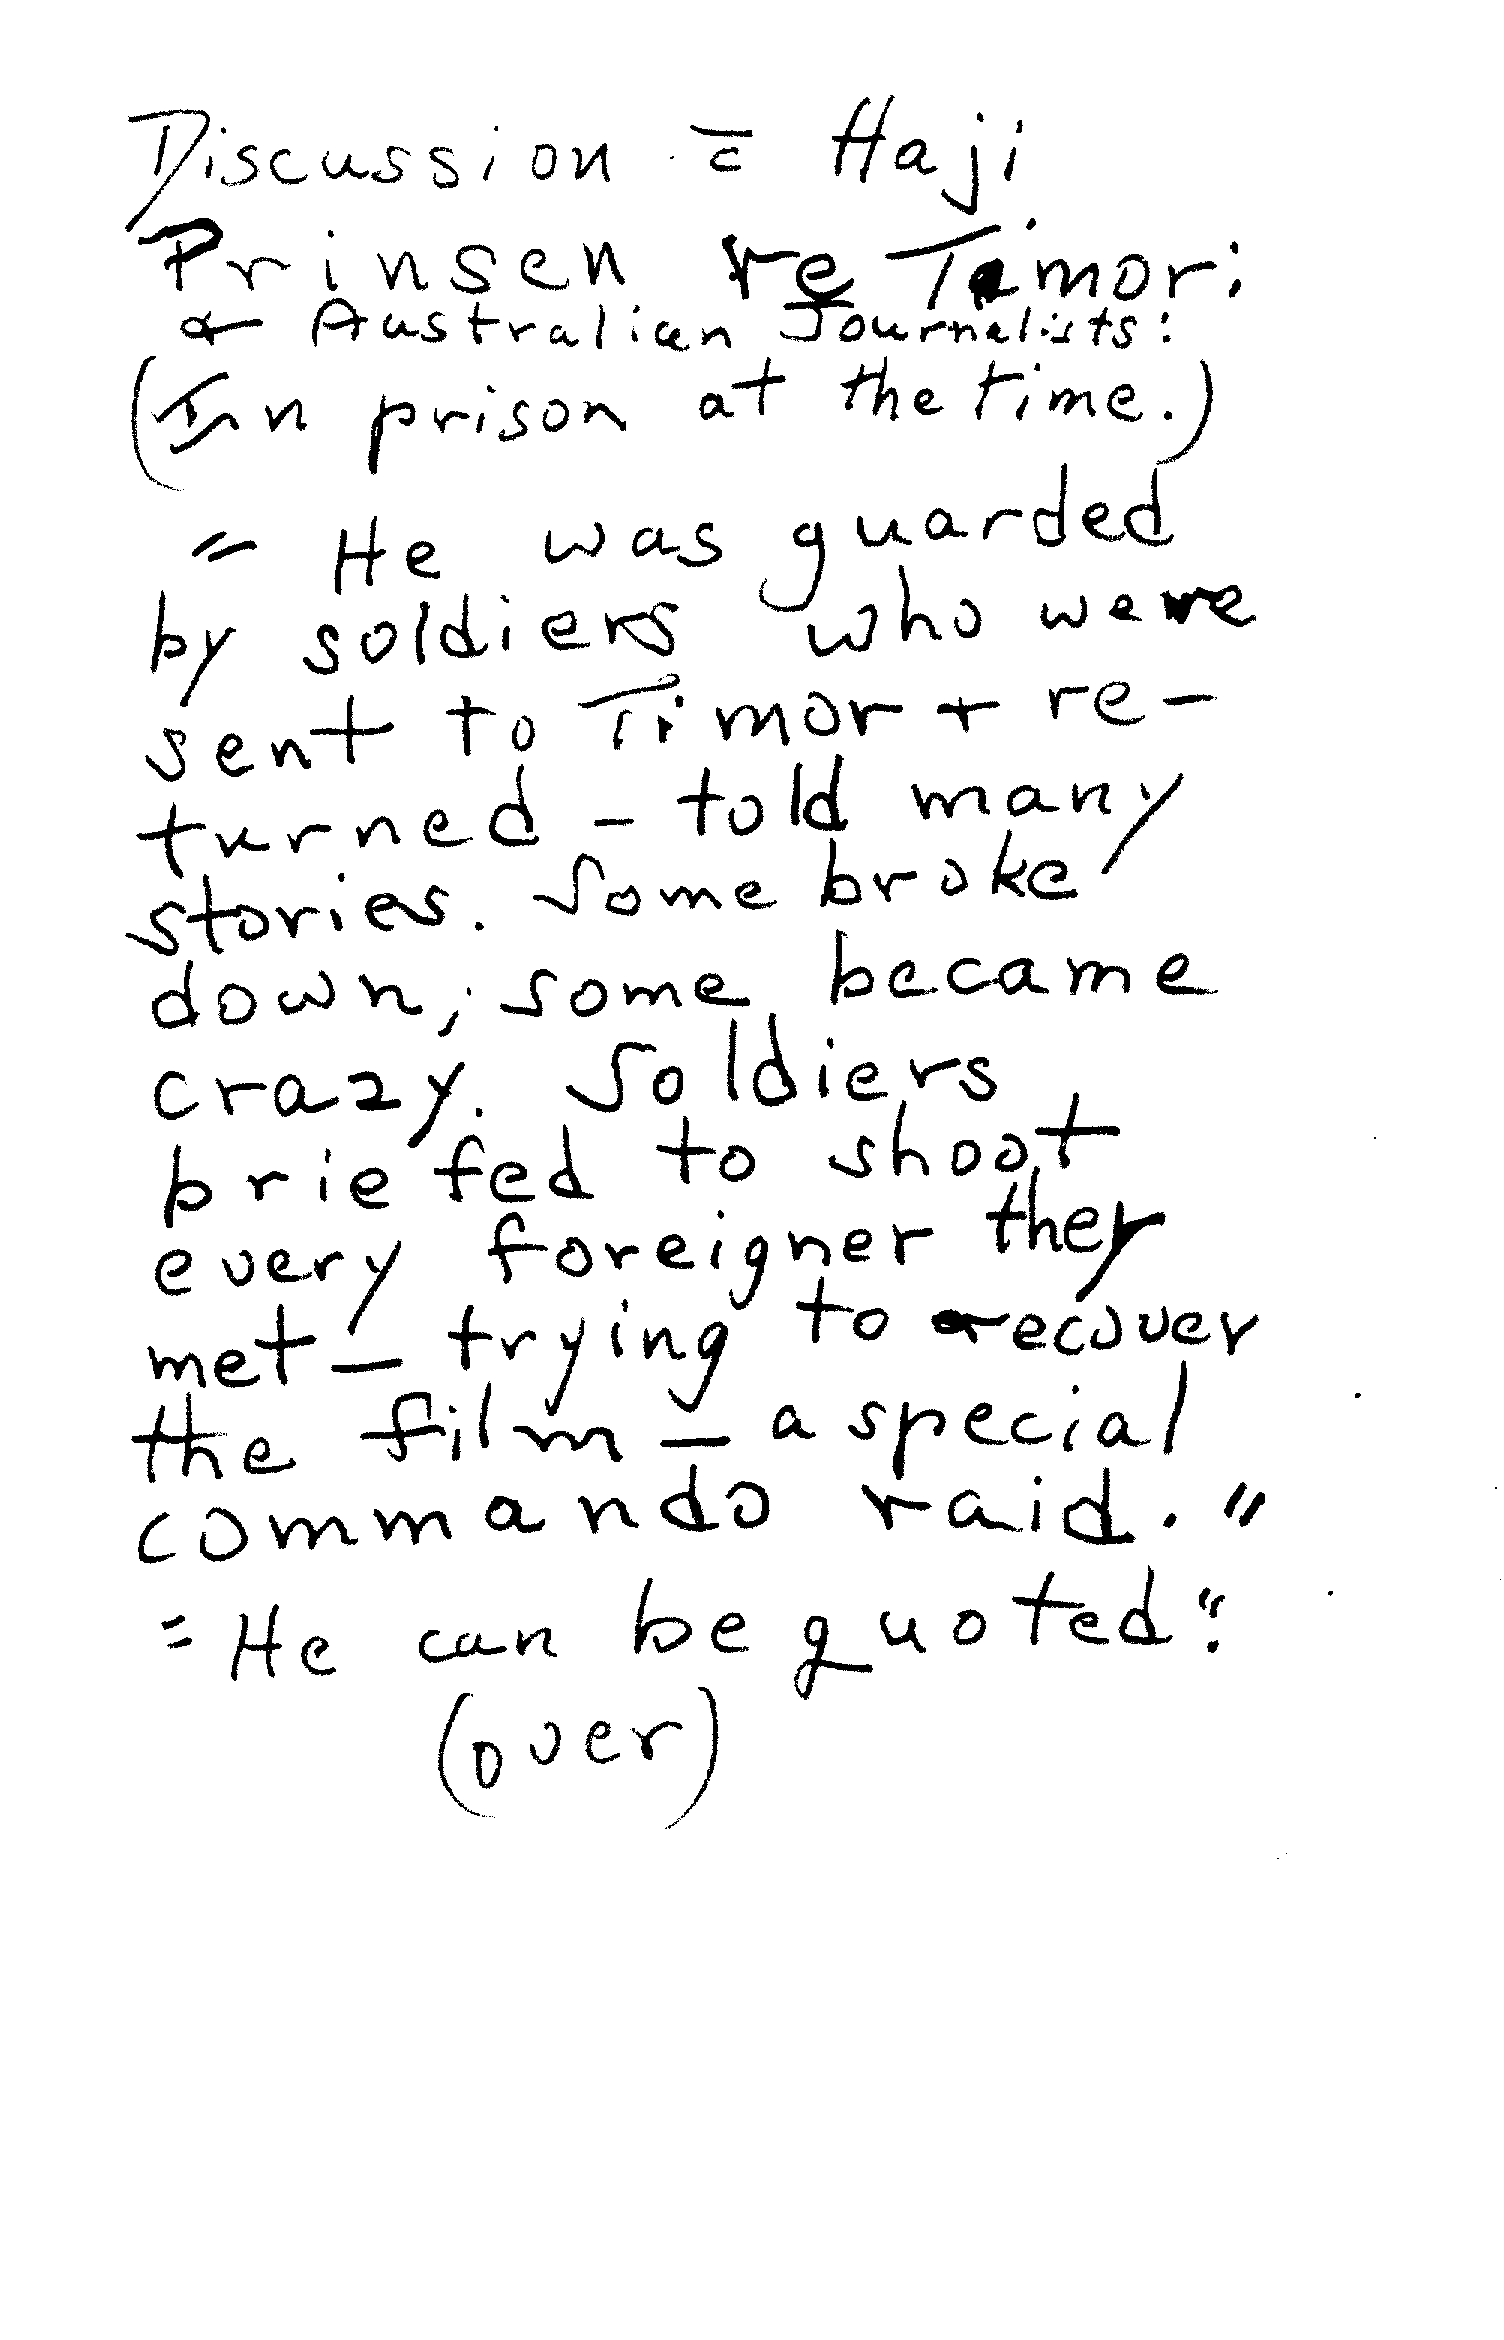 Discussion c̄ Haji
Prinsen re Timor:
& Australian Journalists:
(In prison at the time.)
" He was guarded
by soldiers who were
sent to Timor + re-
turned – told many
stories. Some broke
down; some became
crazy. Soldiers
briefed to shoot
every foreigner they
met – trying to recover
the film – a special
commando raid."
"He can be quoted".
(over)